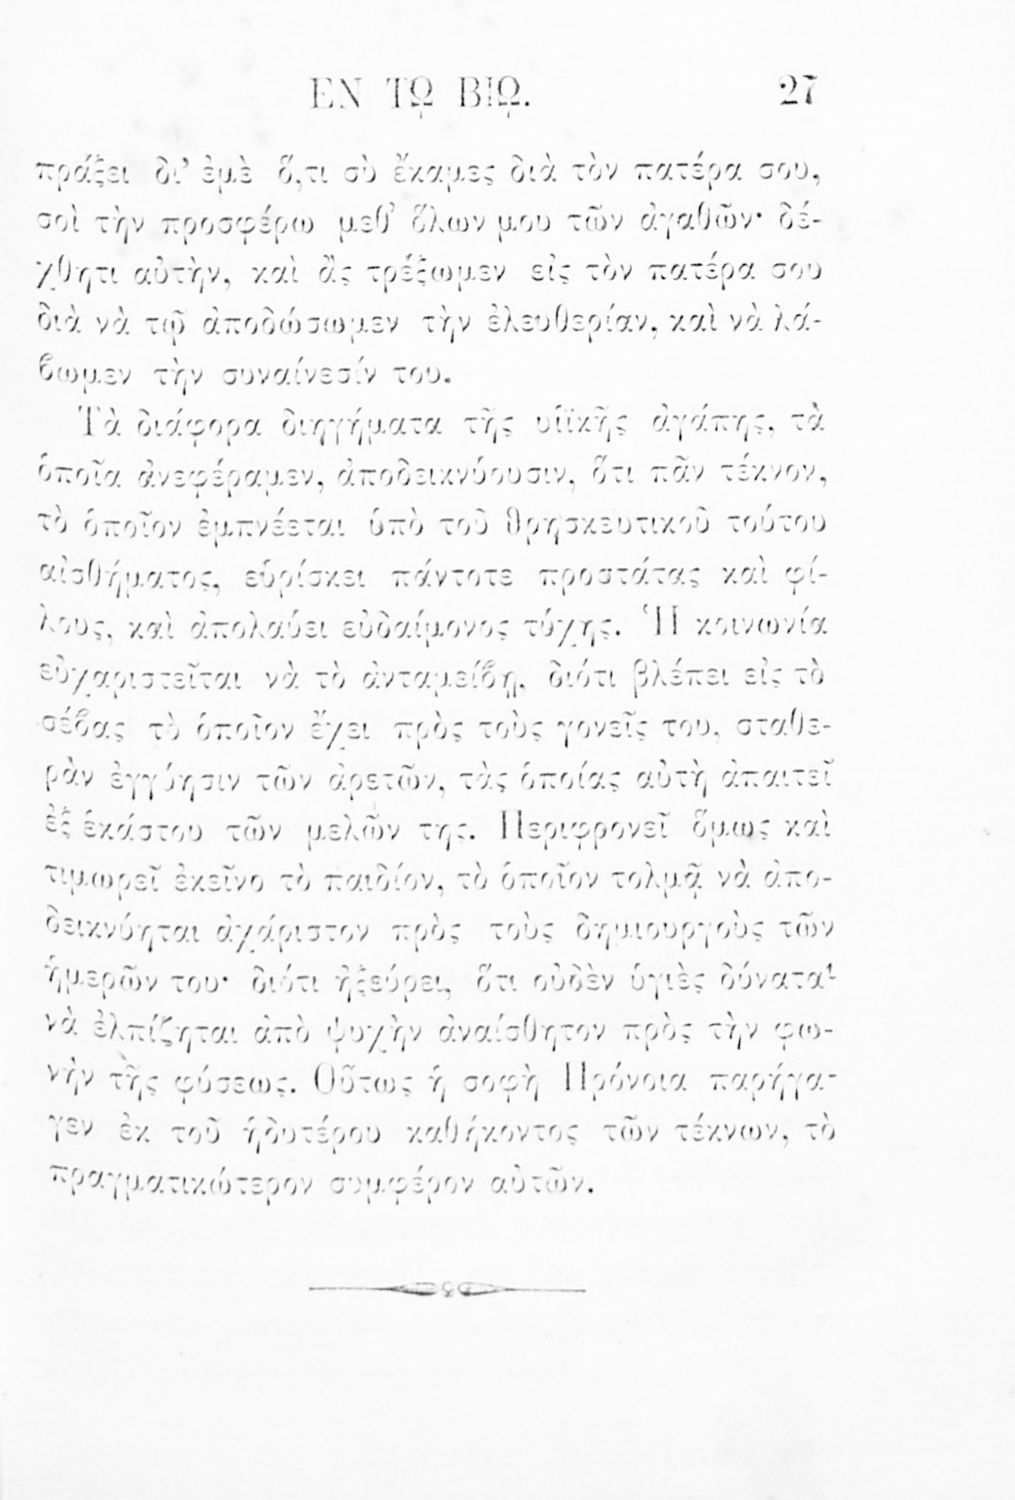 ΕΝ Τῼ ΒΙῼ. 27
πράξει δι’ ἐμὲ ὅ,τι σὺ ἔκαμες διὰ τὸν πατέρα σου,
σοὶ τὴν προσφέρω μεθ’ ὅλων μου τῶν ἀγαθῶν· δέ-
χθητι αὐτὴν, καὶ ἂς τρέξωμεν εἰς τὸν πατέρα σου
διὰ νὰ τῷ ἀποδώσωμεν τὴν ἐλευθερίαν, καὶ νὰ λά-
βωμεν τὴν συναίνεσίν του.
Τὰ διάφορα διηγήματα τῆς υἱϊκῆς ἀγάπης, τὰ
ὁποῖα ἀνεφέραμεν, ἀποδεικνύουσιν, ὅτι πᾶν τέκνον,
τὸ ὁποῖον ἐμπνέεται ὑπὸ τοῦ θρησκευτικοῦ τούτου
αἰσθήματος, εὑρίσκει πάντοτε προστάτας καὶ φί-
λους, καὶ ἀπολαύει εὐδαίμονος τύχης. Ἡ κοινωνία
εὐχαριστεῖται νὰ τὸ ἀνταμείβῃ, διότι βλέπει εἰς τὸ
σέβας τὸ ὁποῖον ἔχει πρὸς τοὺς γονεῖς του, σταθε-
ρὰν ἐγγύησιν τῶν ἀρετῶν, τὰς ὁποίας αὐτὴ ἀπαιτεῖ
ἐξ ἑκάστου τῶν μελῶν της. Περιφρονεῖ ὅμως καὶ
τιμωρεῖ ἐκεῖνο τὸ παιδίον, τὸ ὁποῖον τολμᾷ νὰ ἀπο-
δεικνύηται ἀχάριστον πρὸς τοὺς δημιουργοὺς τῶν
ἡμερῶν του· διότι ἠξεύρει, ὅτι οὐδὲν ὑγιὲς δύναται
νὰ ἐλπίζηται ἀπὸ ψυχὴν ἀναίσθητον πρὸς τὴν φω-
νὴν τῆς φύσεως. Οὕτως ἡ σοφὴ Πρόνοια παρήγα-
γεν ἐκ τοῦ ἡδυτέρου καθήκοντος τῶν τέκνων, τὸ
πραγματικώτερον συμφέρον αὐτῶν.